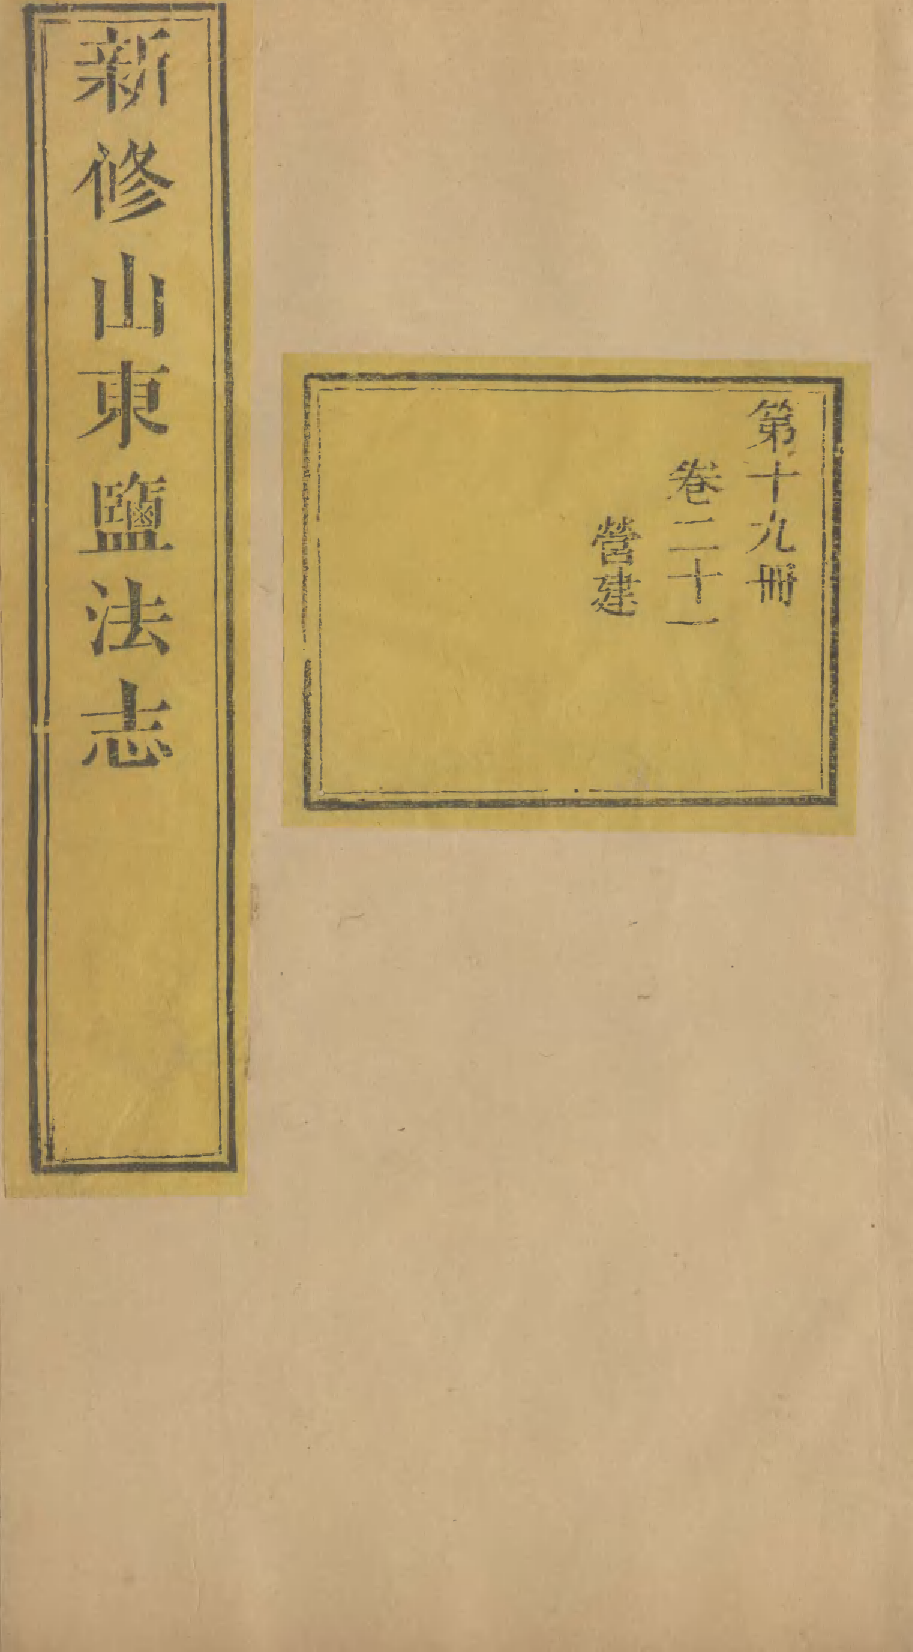 新修山東鹽法志
第十九冊
卷二十一
營建